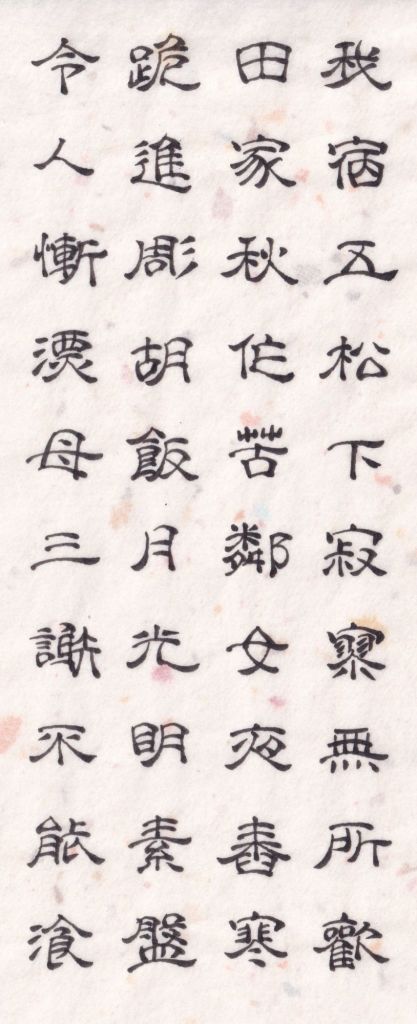 我宿五松下寂寥無所歡
田家秋作苦鄰女夜舂寒
跪進彫胡飯月光明素盤
令人慚漂母三謝不能湌